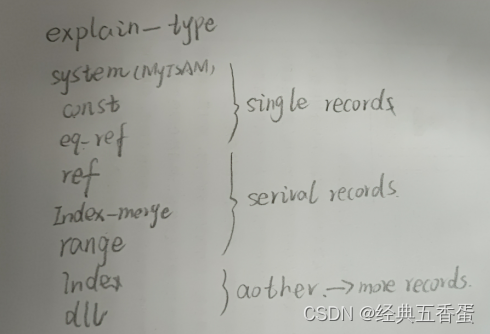 explain-type
system (MyISAM)
const
eq-ref
} single records
ref
Index-merge
range
} serival records.
Index
all
} aother. → more records.
CSDN @经典五香蛋